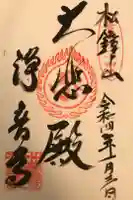 松鐘山
大悲殿
浄音寺
令和四年十一月三日